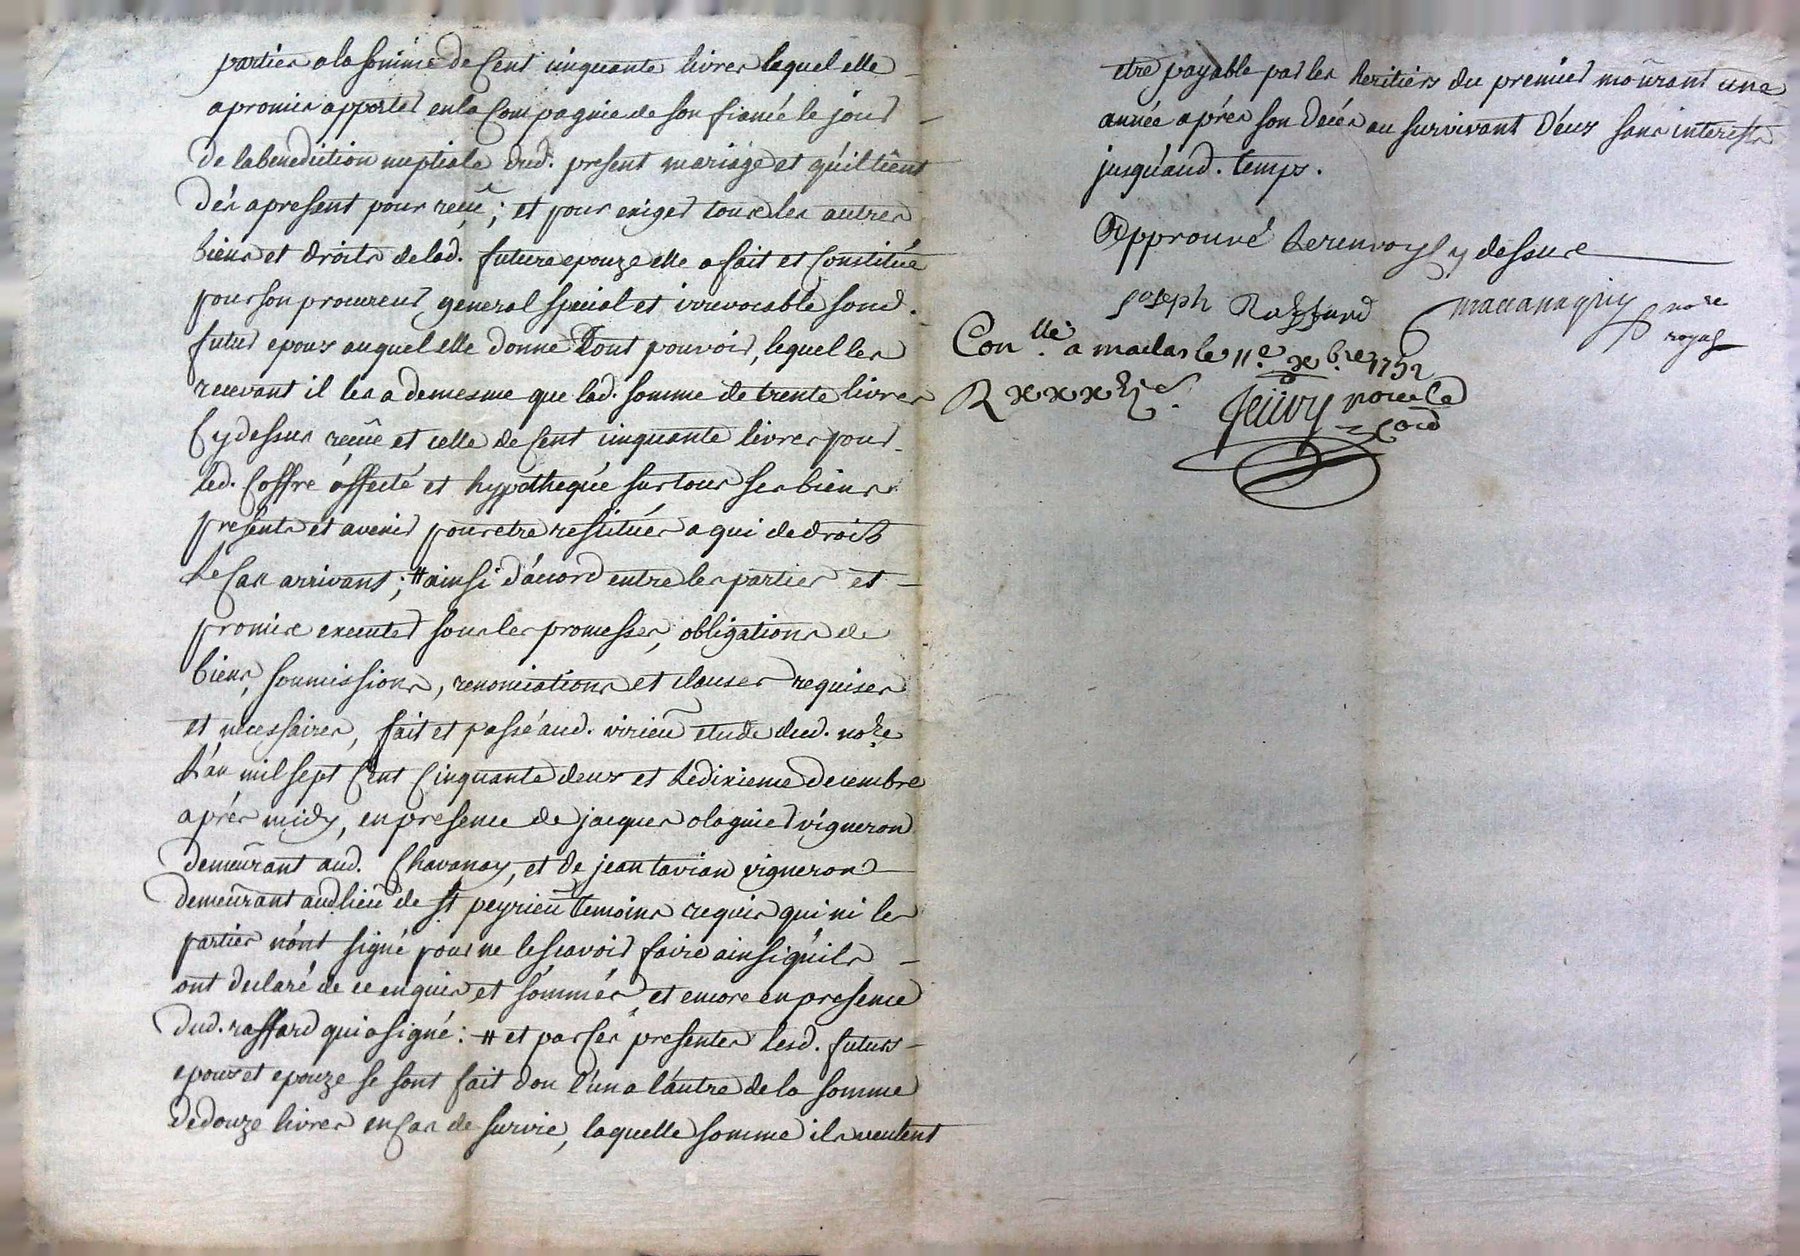 parties a la somme de Cent cinquante livres laquel elle
a promis apporter en la Compagnie de son fiancé le jour
de la benediction nuptiale dud. present mariage et qu'il tient
dés apresent pour reçûe; et pour exiger tous les autres
biens et droits de lad. future epouze elle a fait et Constitué
pour son procureur general special et irrevocable sond.
futur epoux auquel elle donne tout pouvoir, lequel les
recevant il les a de mesme que lad. somme de trente livres
Cy dessus reçûe et celle de Cent cinquante livres pour
led. Coffre affecté et hypothequé sur tous ses biens
presents et avenir pour etre restitués a qui de droit
Le Cas arrivant; # ainsi d'accord entre les parties et
promis executer sous les promesses, obligations de
biens, soumissions, renonciations et clauses requises
et necessaires, fait et passé aud. virieu etude dud. no.re
L'an mil sept Cent Cinquante deux et Le dixieme decembre
aprés midy, en presence de jacques olagnier vigneron
demeurant aud. Chavanay, et de jean tavian vigneron
demeurant aud lieu de st peyrieu temoins requis qui ni les
parties n'ont signé pour ne le scavoir faire ainsi qu'ils
ont declaré de ce enquis et sommés et encore en presence
dud. raffard qui a signé: # et par Ces presentes lesd. futurs
epoux et epouze se sont fait don l'un a l'autre de la somme
de douze livres en Cas de survie, laquelle somme ils veulent
etre payable par les heritiers du premier mourant une
année aprés son decés au survivant d'eux sans interests
jusqu'aud. temps.
Approuvé Le renvoy Cy dessus
joseph Raffard no.re
royal
Con.llé a maclas le 11.e xbre 1752
R